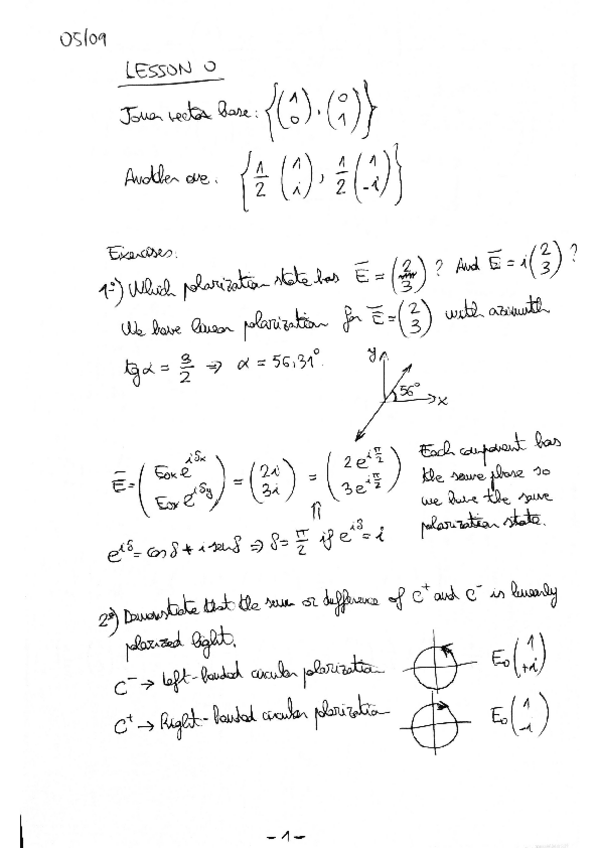 05/09
LESSON 0
Jones vector base: {(1 0), (0 1)}
Another one: {1/2 (1 i), 1/2 (1 -i)}
Exercises:
1º) Which polarization state has E̅ = (2 3)? And E̅ = i(2 3)?
We have linear polarization for E̅ = (2 3) with azimuth
tgα = 3/2 ⇒ α = 56,31°.
y
56°
x
E̅ = (E₀ₓ e^{iδx} E₀ₓ e^{iδy}) = (2i 3i) = (2e^{iπ/2} 3e^{iπ/2})
Each component has
the same phase so
we have the same
polarization state.
⇑
e^{iδ} = cos δ + i sen δ ⇒ δ = π/2 if e^{iδ} = i
2º) Demonstrate that the sum or difference of C⁺ and C⁻ is linearly
polarized light.
C⁻ → Left-handed circular polarization E₀(1 +i)
C⁺ → Right-handed circular polarization E₀(1 -i)
-1-